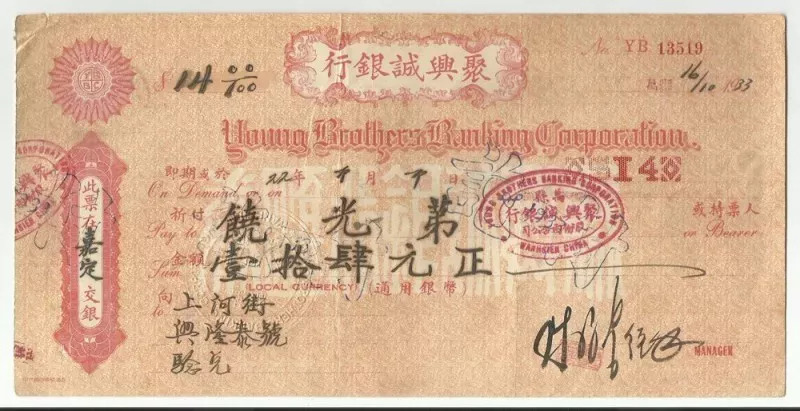 聚興誠銀行
No. YB 13519
$ 14 00/00
16/10 1933
Young Brothers Banking Corporation.
$14
即期或於 22年 月 日
On Demand, or on
祈付 饒光第 或持票人
Pay to or Bearer
金額 壹拾肆元正
Sum
(LOCAL CURRENCY) 通用銀幣
向 上河街
to 興隆泰號
驗兌
此票在嘉定交銀
YOUNG BROTHERS BANKING CORPORATION
萬縣
聚興誠銀行
股份有限公司
WANHSIEN CHINA
MANAGER